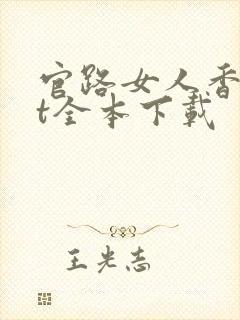 官路女人香
t全本下载
王光志